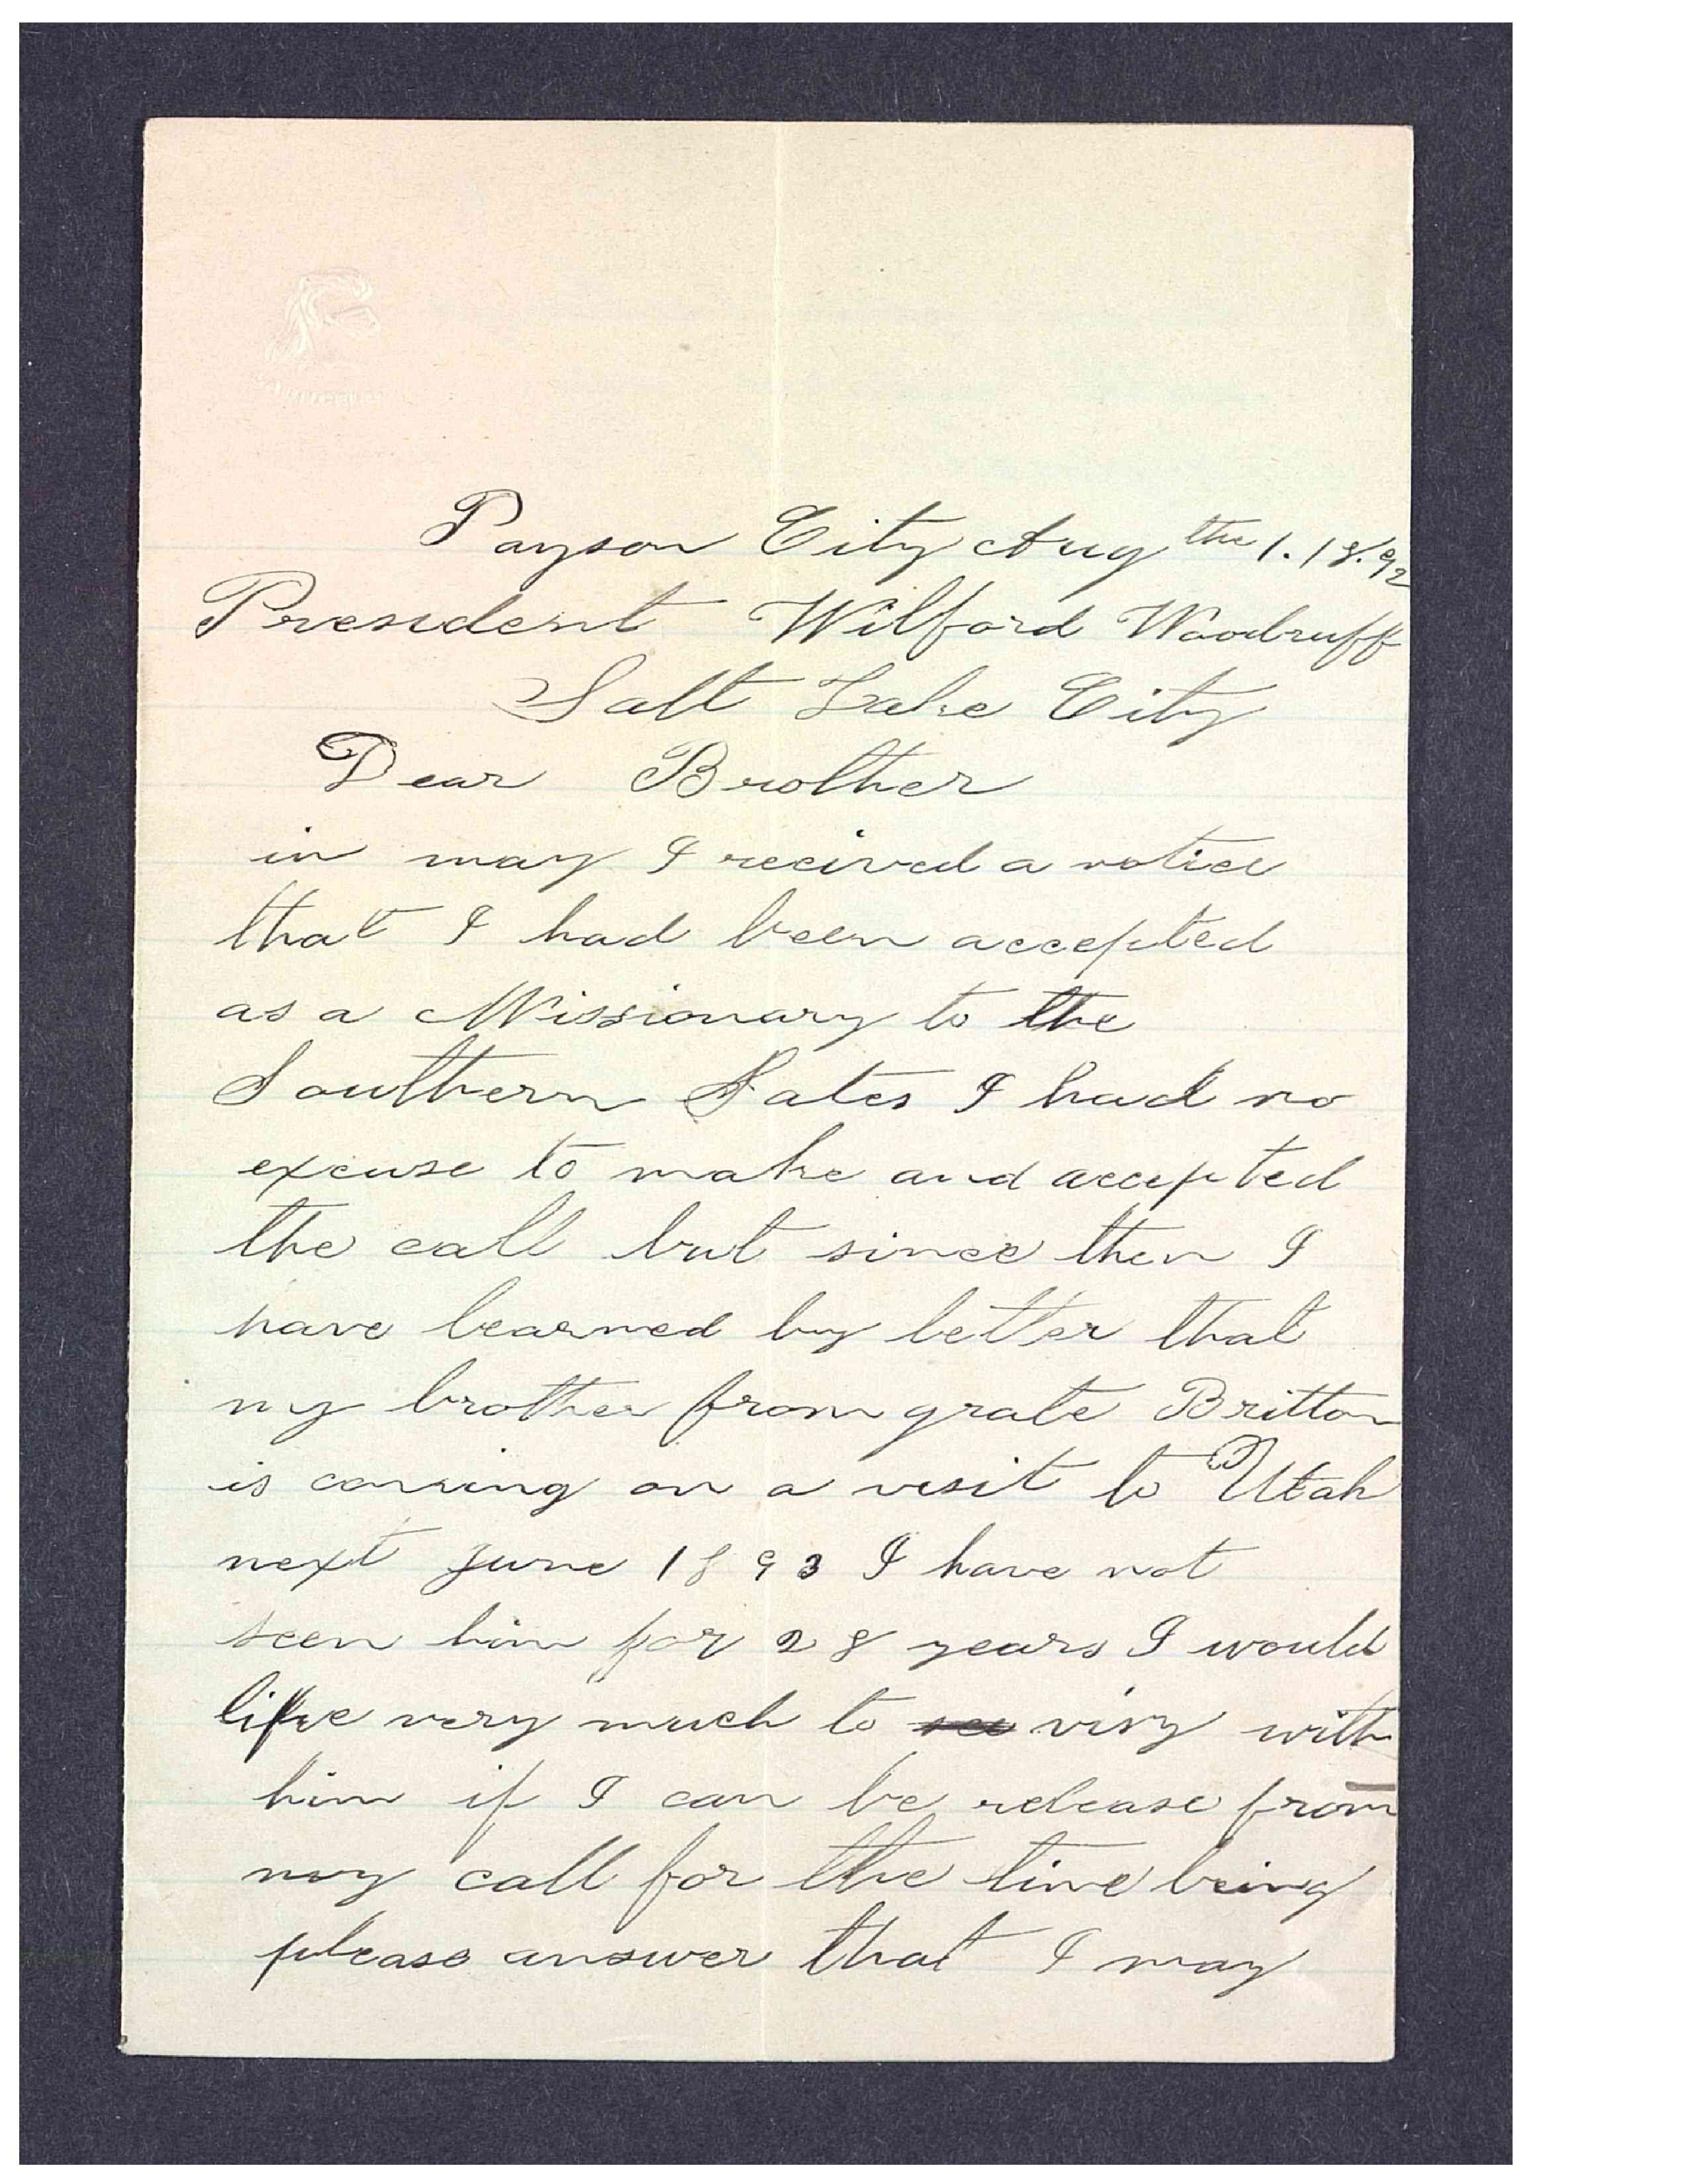 Payson City Aug the 1. 18.92
President Wilford Woodruff
Salt Lake City
Dear Brother
in may I recived a notice
that I had been accepted
as a Missionary to the
Southern Sates I had no
excuse to make and accepted
the call but since then I
have learned by letter that
my brother from grate Britton
is coming on a visit to Utah
next June 1893 I have not
seen him for 28 years I would
like very much to see with
him if I can be release from
my call for the time being
please answer that I may